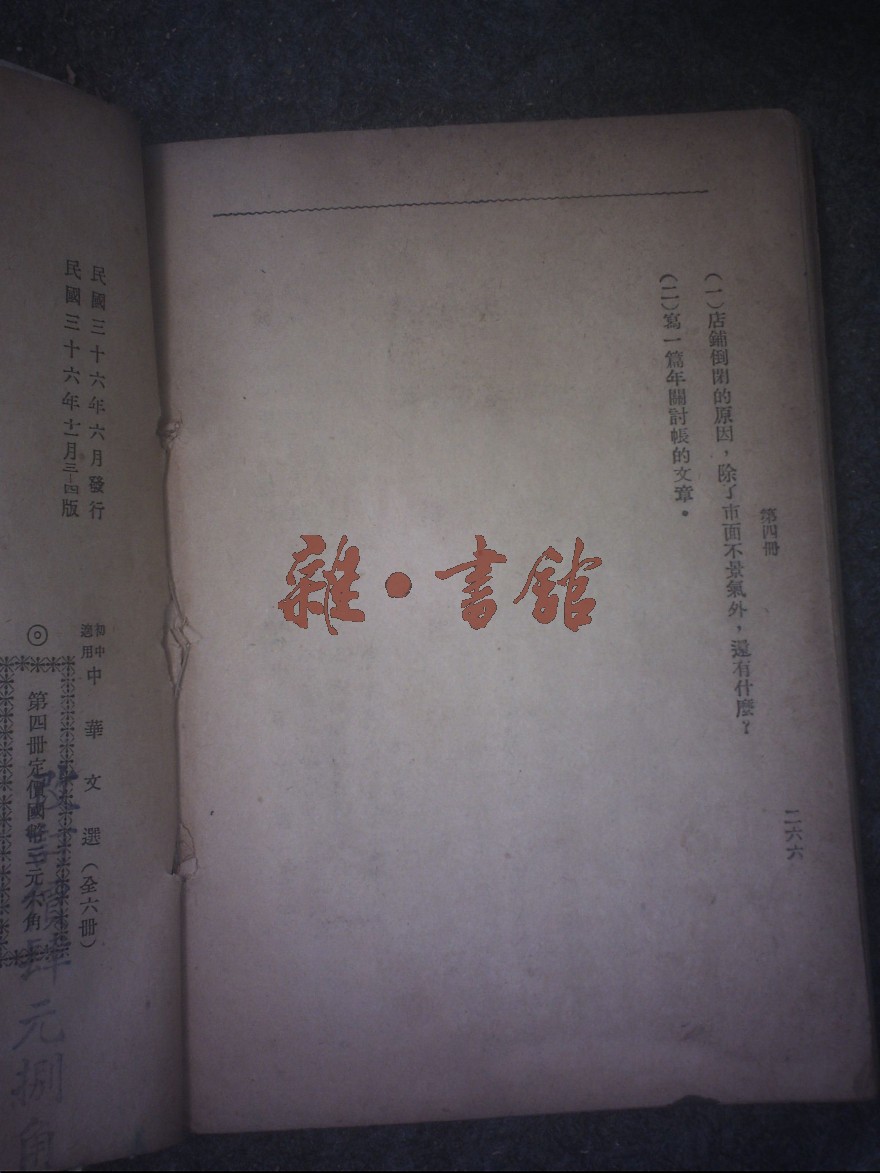 第四冊
二六六
(一)店鋪倒閉的原因，除了市面不景氣外，還有什麼？
(二)寫一篇年關討帳的文章。
雜·書館
民國三十六年六月發行
民國三十六年十一月三-四版
初中適用
中華文選(全六冊)
◎
第四冊定價國幣三元六角
改售價肆元捌角